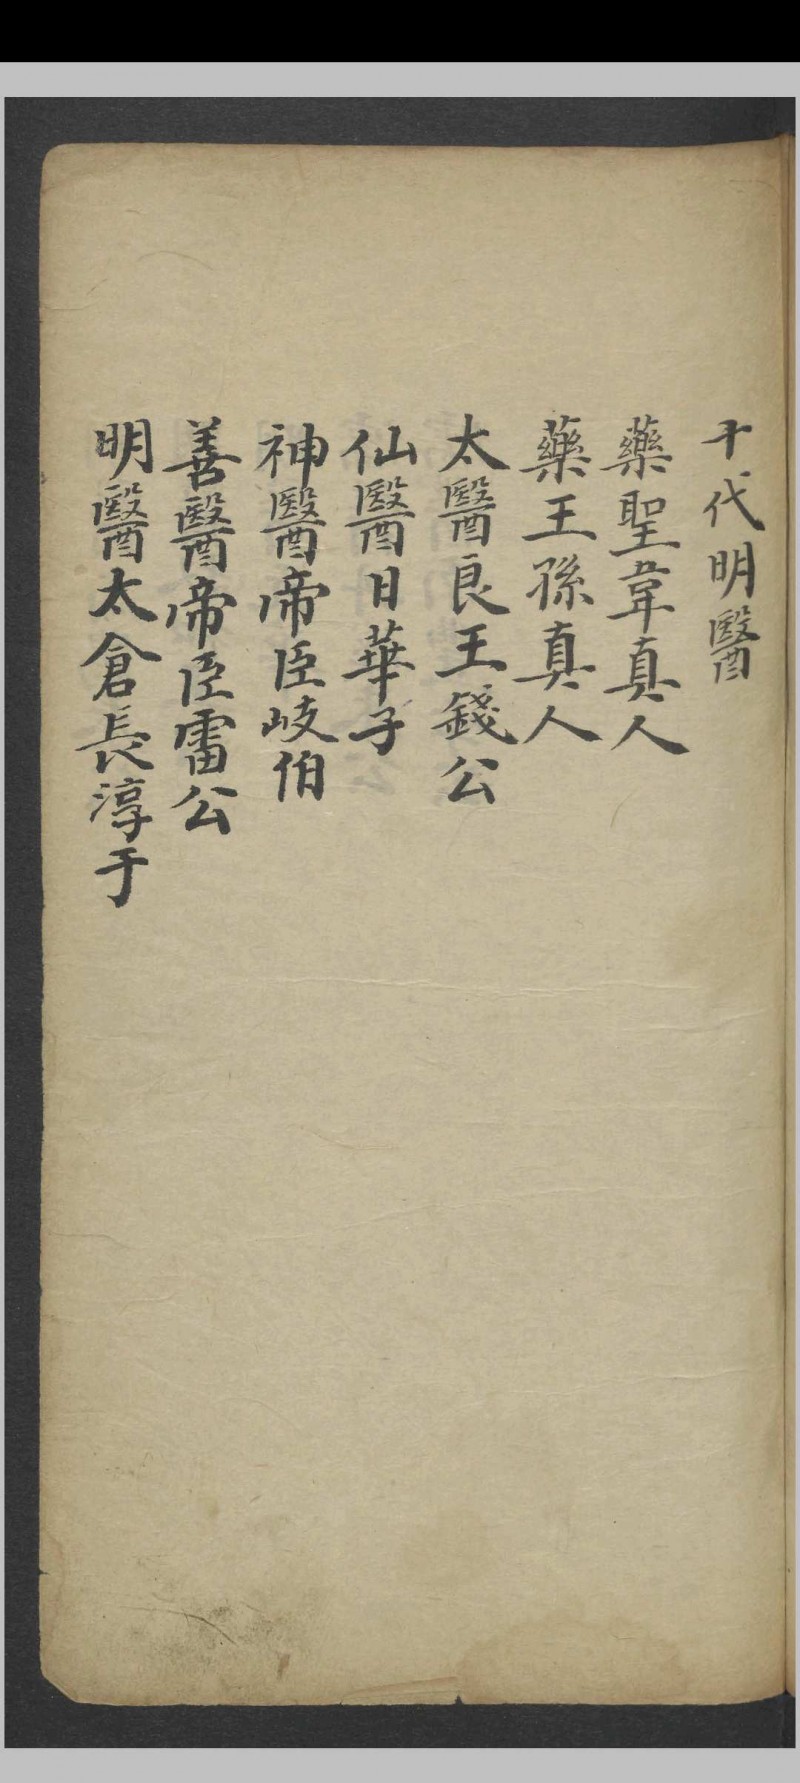 十代明醫
藥聖韋真人
藥王孫真人
太醫良王錢公
仙醫日華子
神醫帝臣岐伯
善醫帝臣雷公
明醫太倉長淳于